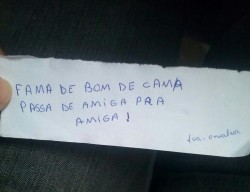 FAMA DE BOM DE CAMA
PASSA DE AMIGA PRA
AMIGA!